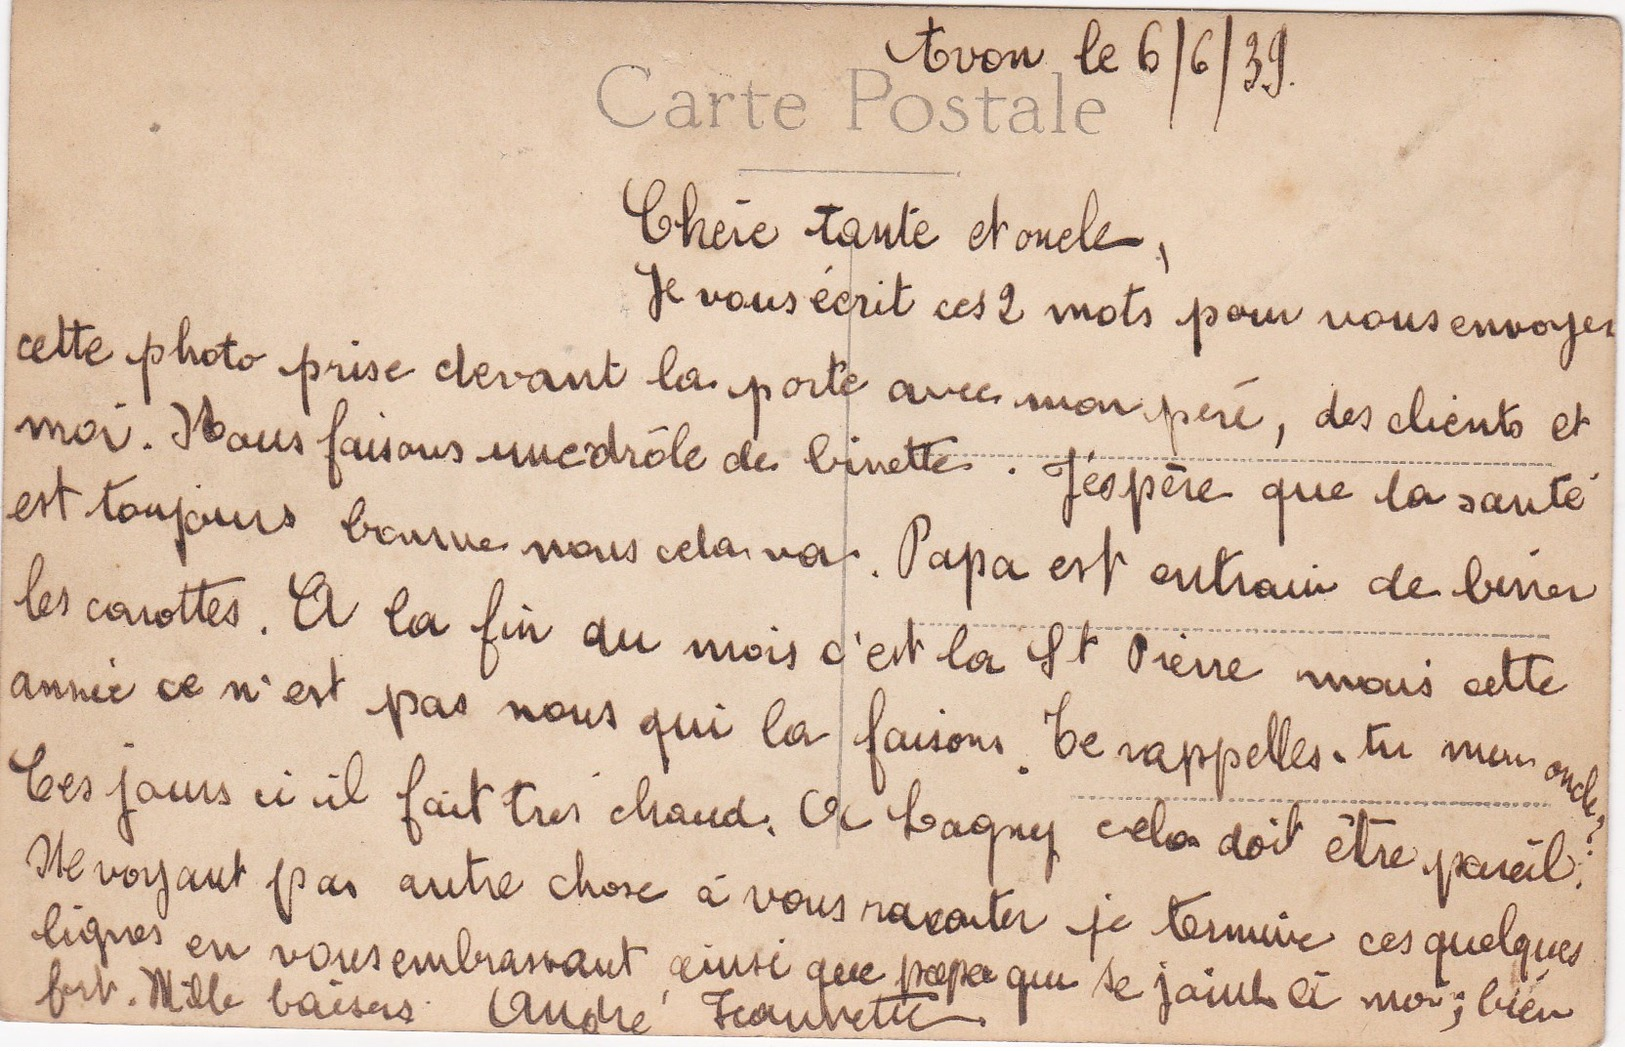 Avon le 6/6/39.
Carte Postale
Chère tante et oncle,
Je vous écrit ces 2 mots pour vous envoyer
cette photo prise devant la porte avec mon père, des clients et
moi. Nous faisons une drôle de binette. J'éspère que la santé
est toujours bonne nous cela va. Papa est entrain de biner
les carottes. A la fin du mois c'est la St Pierre mais cette
année ce n'est pas nous qui la faisons. Te rappelles-tu mon oncle?
Ces jours ci il fait très chaud. A Lagny cela doit être pareil.
Ne voyant pas autre chose à vous raconter je termine ces quelques
lignes en vous embrassant ainsi que papa qui se joint à moi, bien
fort. Mille baisers André Jeannette